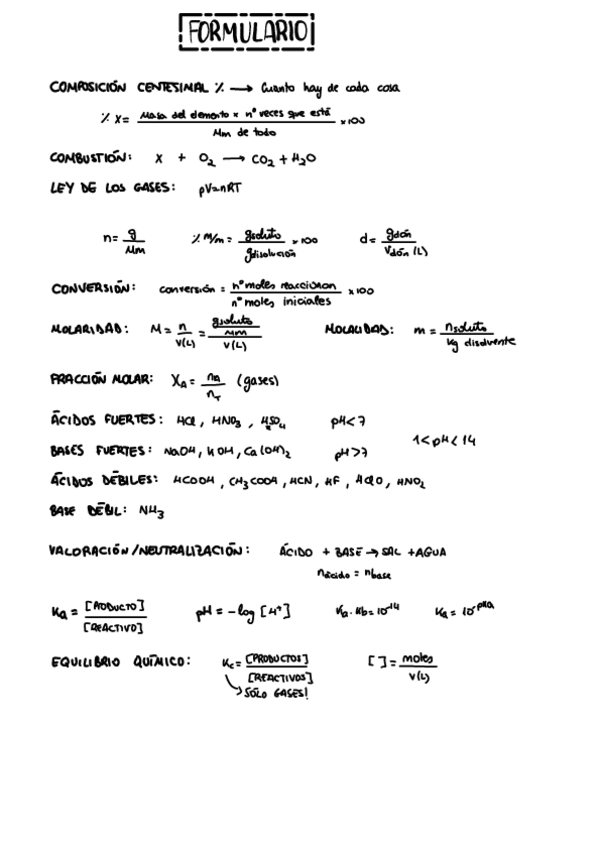 FORMULARIO
COMPOSICIÓN CENTESIMAL % → Cuanto hay de cada cosa
% X = Masa del elemento x nº veces que está / Mm de todo x 100
COMBUSTIÓN: X + O₂ → CO₂ + H₂O
LEY DE LOS GASES: pV=nRT
n = g / Mm % m/m = gsoluto / gdisolución x 100 d = gdón / Vdón (L)
CONVERSIÓN: conversión = nº moles reaccionan / nº moles iniciales x 100
MOLARIDAD: M = n / V(L) = gsoluto / Mm / V(L) MOLALIDAD: m = nsoluto / kg disolvente
FRACCIÓN MOLAR: XA = nA / nT (gases)
ÁCIDOS FUERTES: HCl, HNO₃, H₂SO₄ pH<7
1<pH<14
BASES FUERTES: NaOH, KOH, Ca(OH)₂ pH>7
ÁCIDOS DÉBILES: HCOOH, CH₃COOH, HCN, HF, HClO, HNO₂
BASE DÉBIL: NH₃
VALORACIÓN/NEUTRALIZACIÓN: ÁCIDO + BASE → SAL + AGUA
nácido = nbase
Ka = [PRODUCTO] / [REACTIVO] pH = -log [H⁺] Ka · Kb = 10⁻¹⁴ Ka = 10⁻ᵖᴷᵃ
EQUILIBRIO QUÍMICO: Kc = [PRODUCTOS] / [REACTIVOS] [ ] = moles / V(L)
SÓLO GASES!